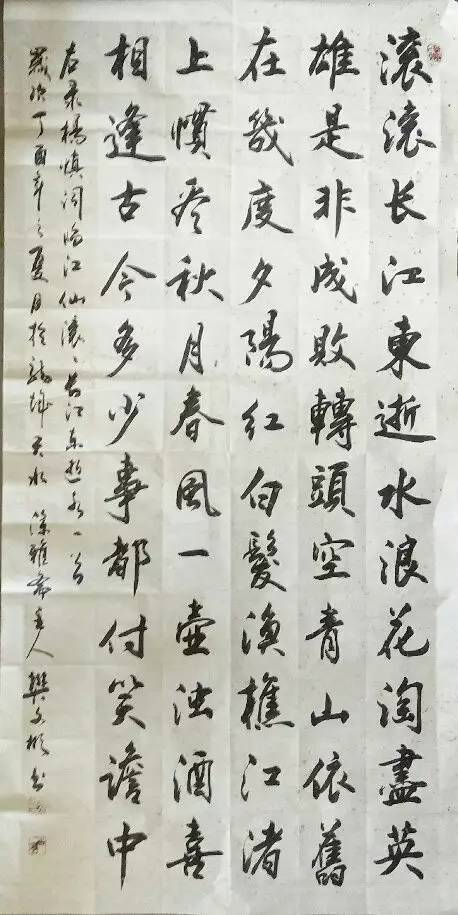 滾滾长江東逝水浪花淘盡英
雄是非成敗轉頭空青山依舊
在幾度夕陽紅白髮漁樵江渚
上慣看秋月春風一壺浊酒喜
相逢古今多少事都付笑譫中
右录楊慎词临江仙滚々長江东逝水一首
歲次丁酉年之夏月於龍城天水 雅斋主人樊文书